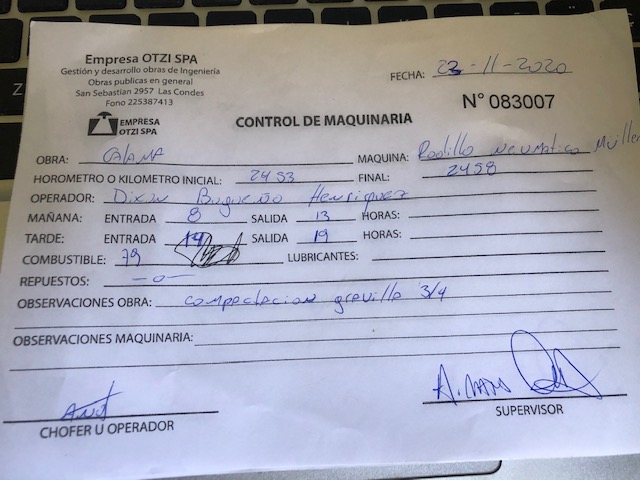 Empresa OTZI SPA
Gestión y desarrollo obras de Ingeniería
Obras publicas en general
San Sebastian 2957 Las Condes
Fono 225387413
FECHA: 23-11-2020
EMPRESA
OTZI SPA
CONTROL DE MAQUINARIA
N° 083007
OBRA: MAQUINA: Rodillo Neumatico
HOROMETRO O KILOMETRO INICIAL: 2493 FINAL: 2498
OPERADOR: Henriquez
MAÑANA: ENTRADA 8 SALIDA 13 HORAS:
TARDE: ENTRADA SALIDA 19 HORAS:
COMBUSTIBLE: 79 LUBRICANTES:
REPUESTOS: -0-
OBSERVACIONES OBRA: compactacion gravilla 3/4
OBSERVACIONES MAQUINARIA:
CHOFER U OPERADOR
SUPERVISOR